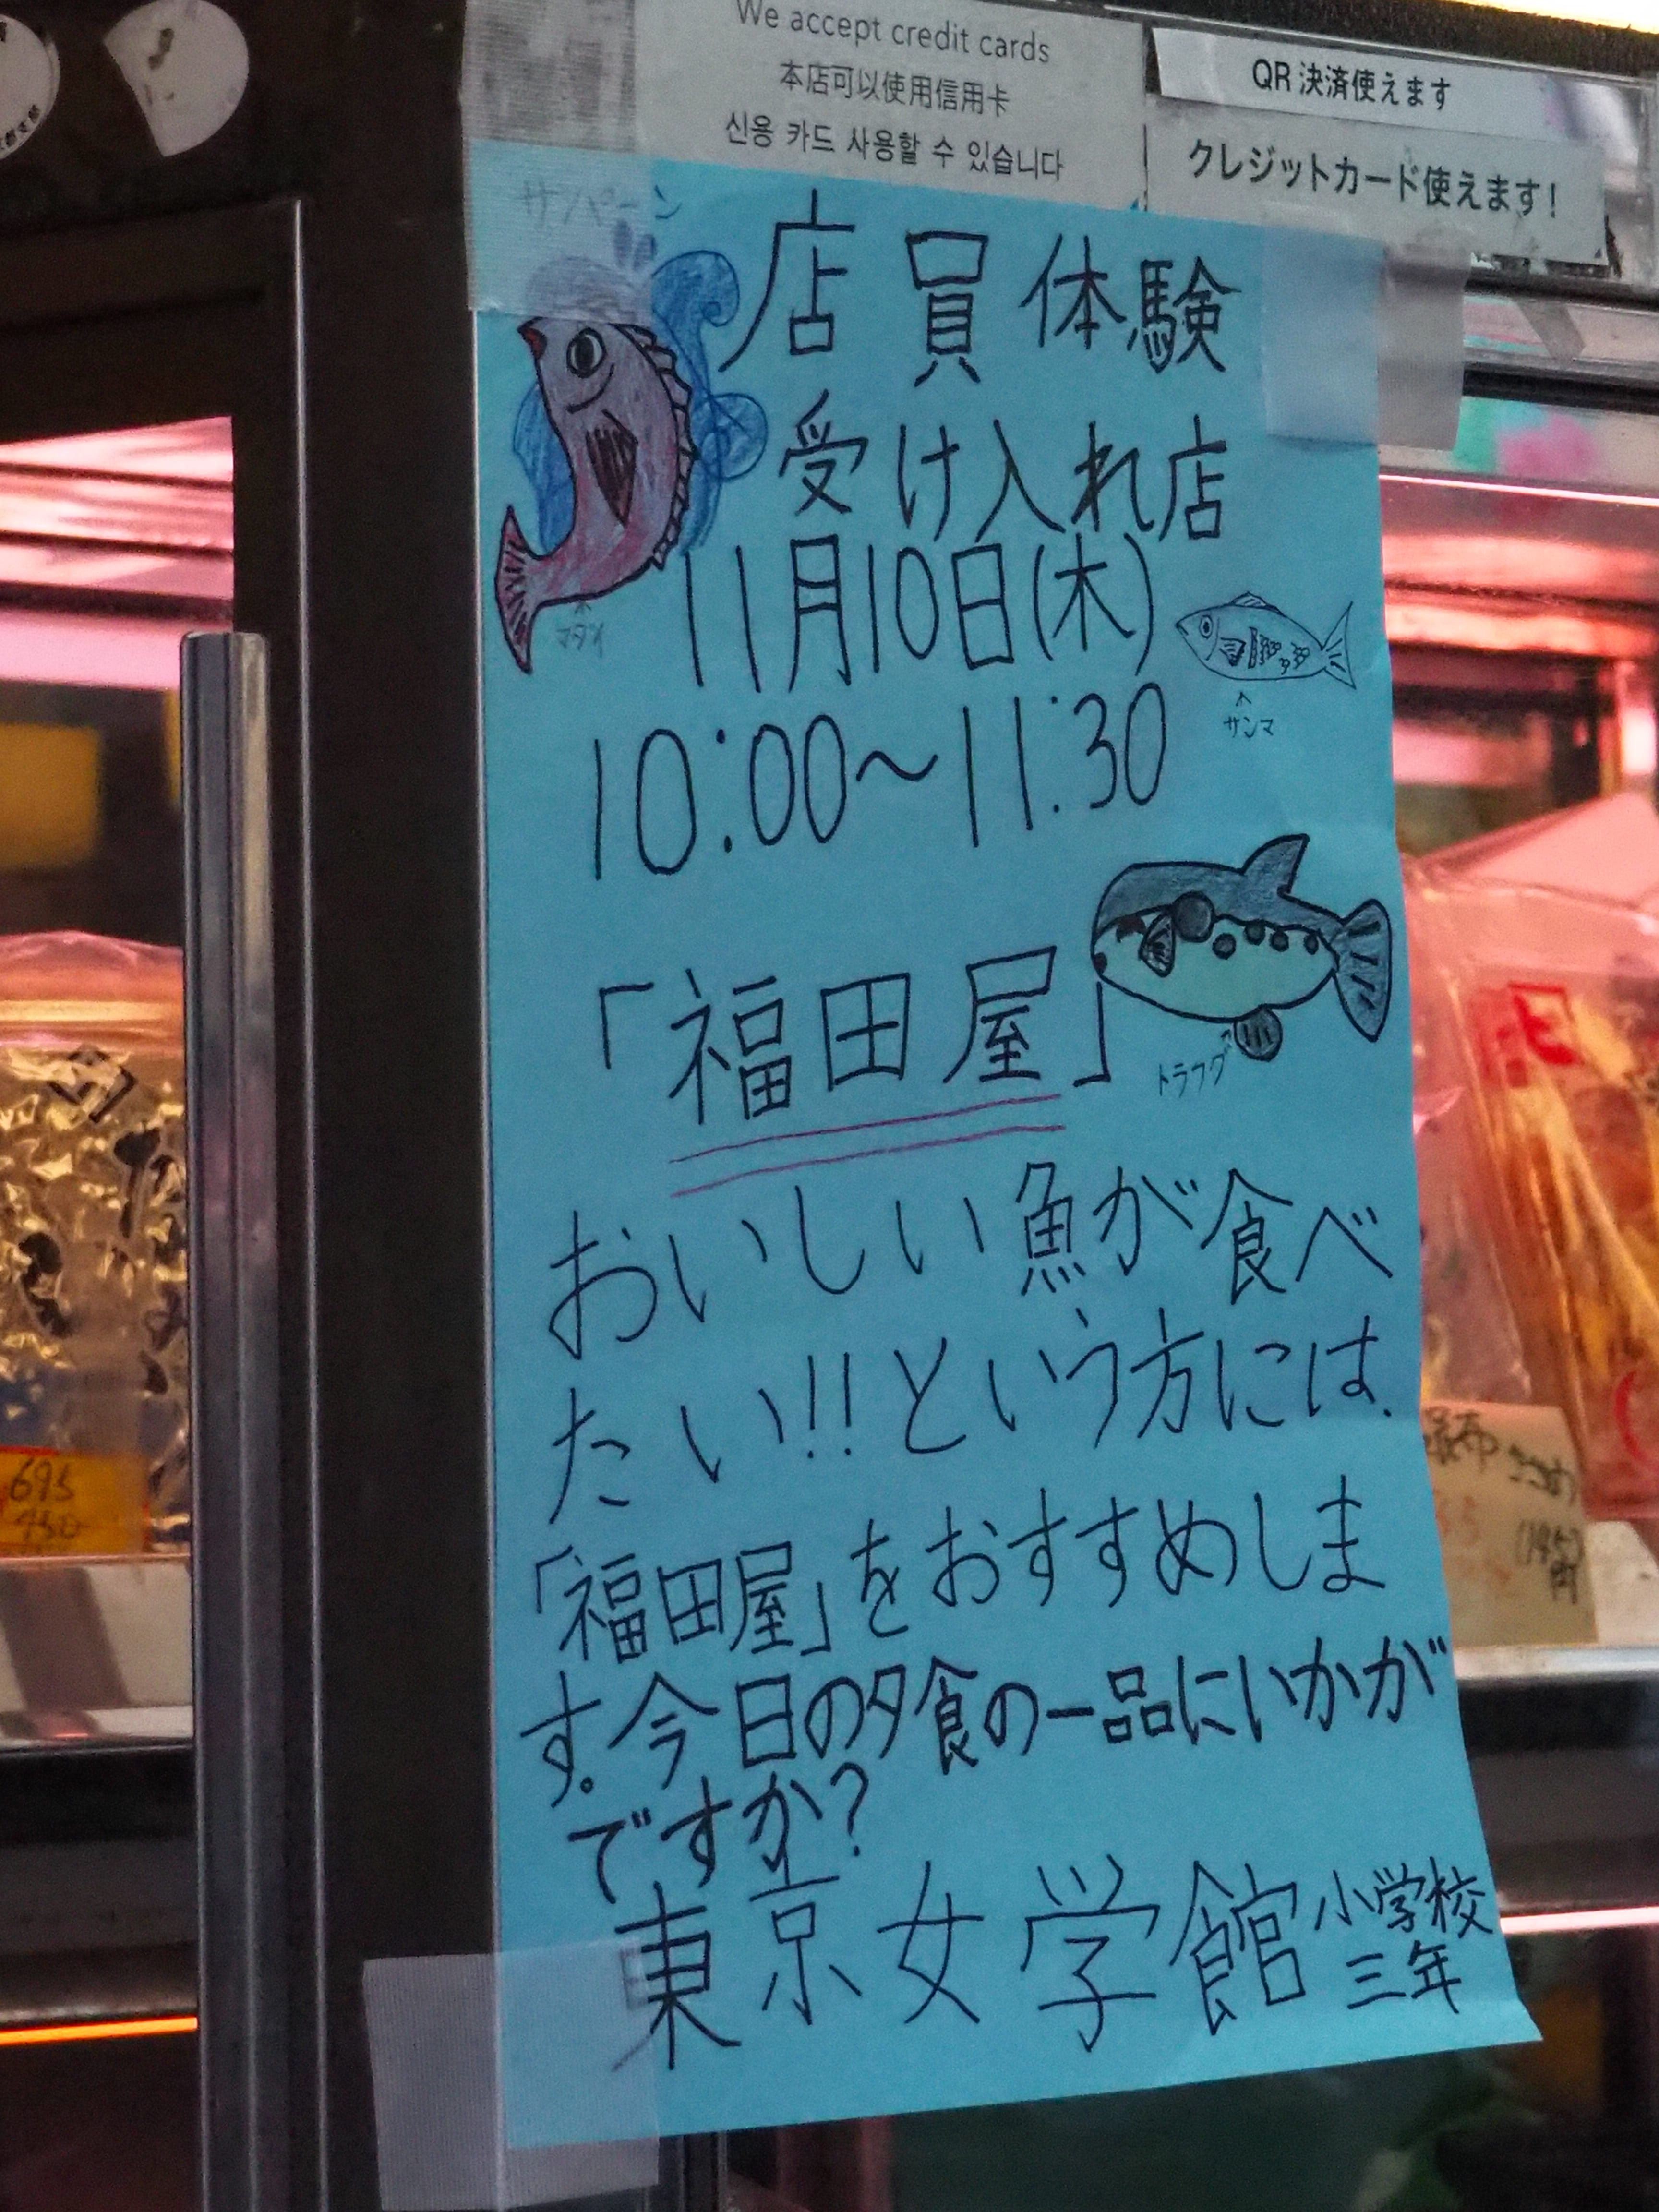 We accept credit cards
本店可以使用信用卡
신용 카드 사용할 수 있습니다
QR決済使えます
クレジットカード使えます!
店員体験
受け入れ店
11月10日(木)
10:00~11:30
マダイ
サンマ
「福田屋」
トラフグ
おいしい魚が食べ
たい!!という方には、
「福田屋」をおすすめしま
す。今日の夕食の一品にいかが
ですか?
東京女学館小学校
三年